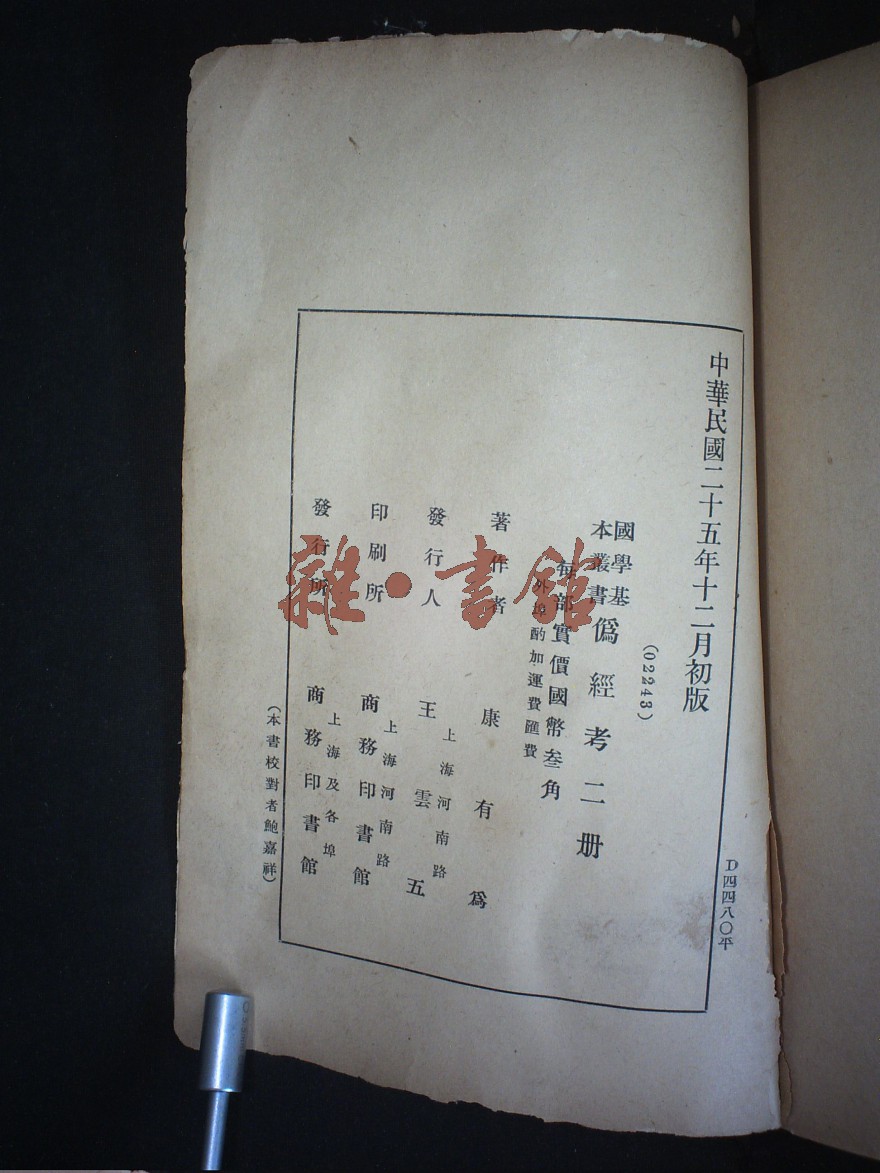 中華民國二十五年十二月初版
(02243)
國學基
本叢書
僞經考二册
每部實價國幣叁角
外埠酌加運費匯費
著作者
康有爲
發行人
上海河南路
王雲五
印刷所
上海河南路
商務印書館
發行所
上海及各埠
商務印書館
(本書校對者鮑嘉祥)
D四四八〇平
雜·書館